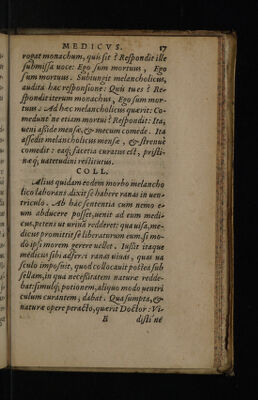 MEDICVS. 17
rogat monachum, quis sit? Respondit ille
submissa uoce: Ego sum mortuus, Ego
sum mortuus. Subiungit melancholicus,
audita hac responsione: Quis tu es? Re-
spondit iterum monachus, Ego sum mor-
tuus. Ad hæc melancholicus quærit: Co-
medunt ne etiam mortui? Respondit: Ita,
ueni asside mensæ, & mecum comede. Ita
assedit melancholicus mensæ, & strenuè
comedit: eaq; facetia curatus est, pristi-
næq; ualetudini restitutus.
COLL.
Alius quidam eodem morbo melancho
lico laborans, dixit se habere ranas in uen-
triculo. Ab hac sententia cum nemo e-
um abducere posset, uenit ad eum medi-
cus, petens ut urinā redderet: qua uisa, me-
dicus promittit se liberaturum eum, si mo-
do ipsi morem gerere uellet. Iussit itaque
medicus sibi adferri ranas uiuas, quas ua
sculo imposuit, quod collocauit postea sub
sellam, in qua necessitatem naturæ redde-
bat: simulq; potionem, aliquo modo uentri
culum curantem, dabat. Qua sumpta, &
naturæ opere peracto, quærit Doctor: Vi-
B disti ne